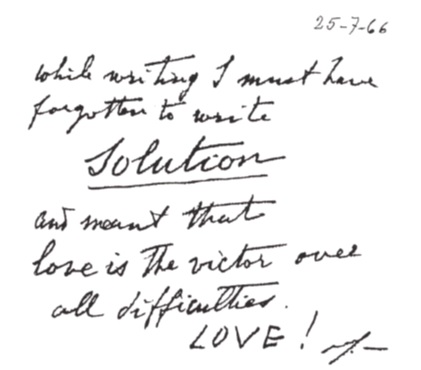 25-7-66
while writing I must have
forgotten to write
Solution
and meant that
love is the victor over
all difficulties.
LOVE!